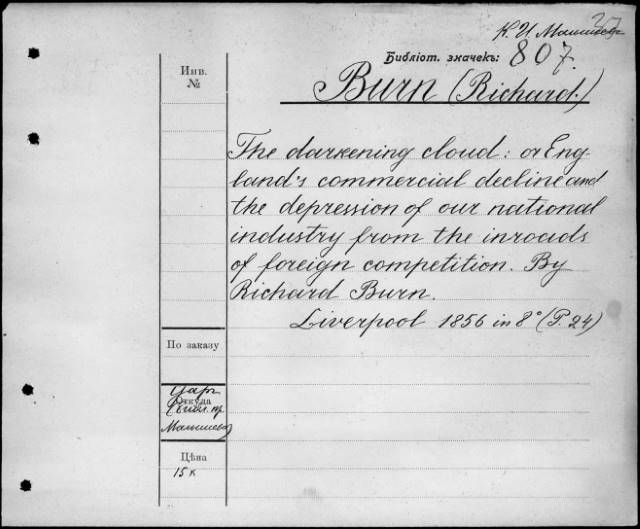 37
К. И. Маши
Библіот. значекъ: 807.
Инв.
№
Burn (Richard.)
The darkening cloud: or Eng-
land's commercial decline and
the depression of our national
industry from the inroads
of foreign competition. By
Richard Burn.
Liverpool 1856 in 8° (P. 24)
По заказу
Откуда
Цѣна
15 к